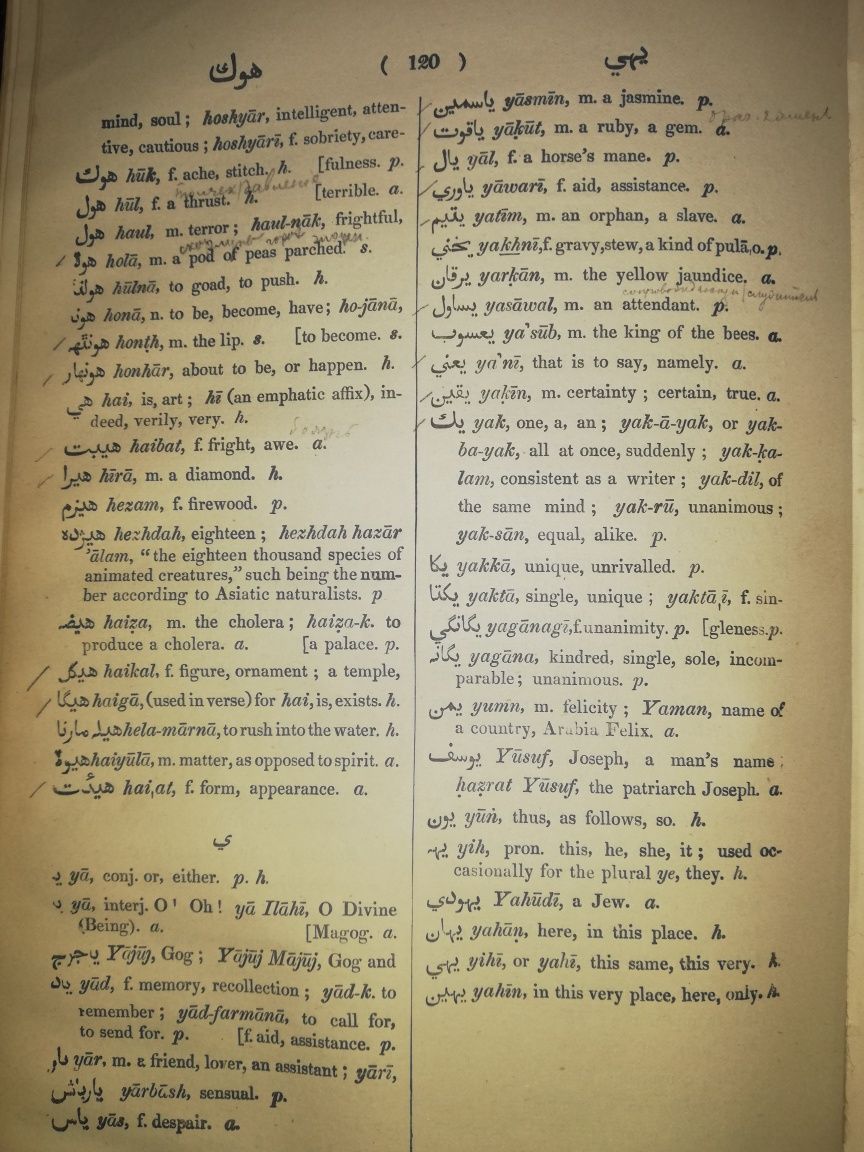 هوك ( 120 ) يهي
mind, soul; hoshyār, intelligent, atten-
tive, cautious; hoshyārī, f. sobriety, care-
هوك hūk, f. ache, stitch. h. [fulness. p.
هول hūl, f. a thrust. h. [terrible. a.
هول haul, m. terror; haul-nāk, frightful,
هولا holā, m. a pod of peas parched. s.
هولنا hūlnā, to goad, to push. h.
هونا honā, n. to be, become, have; ho-jānā,
هونٿهہ honṭh, m. the lip. s. [to become. s.
هونهار honhār, about to be, or happen. h.
هي hai, is, art; hī (an emphatic affix), in-
deed, verily, very. h.
هيبت haibat, f. fright, awe. a.
هيرا hīrā, m. a diamond. h.
هيزم hezam, f. firewood. p.
هيژده hezhdah, eighteen; hezhdah hazār
'ālam, “the eighteen thousand species of
animated creatures,” such being the num-
ber according to Asiatic naturalists. p
هيضہ haiẓa, m. the cholera; haiẓa-k. to
produce a cholera. a. [a palace. p.
هيكل haikal, f. figure, ornament; a temple,
هيگا haigā, (used in verse) for hai, is, exists. h.
هيلہ مارنا hela-mārnā, to rush into the water. h.
هيولا haiyūlā, m. matter, as opposed to spirit. a.
هيئت hai,at, f. form, appearance. a.
ي
يا yā, conj. or, either. p. h.
يا yā, interj. O! Oh! yā Ilāhī, O Divine
(Being). a. [Magog. a.
ياجوج Yājūj, Gog; Yājūj Mājūj, Gog and
ياد yād, f. memory, recollection; yād-k. to
remember; yād-farmānā, to call for,
to send for. p. [f. aid, assistance. p.
يار yār, m. a friend, lover, an assistant; yārī,
يارباش yārbāsh, sensual. p.
ياس yās, f. despair. a.
ياسمين yāsmīn, m. a jasmine. p.
ياقوت yāḳūt, m. a ruby, a gem. a.
يال yāl, f. a horse's mane. p.
ياوري yāwarī, f. aid, assistance. p.
يتيم yatīm, m. an orphan, a slave. a.
يخني yakhnī, f. gravy, stew, a kind of pulā,o. p.
يرقان yarḳān, m. the yellow jaundice. a.
يساول yasāwal, m. an attendant. p.
يعسوب ya'sūb, m. the king of the bees. a.
يعني ya'nī, that is to say, namely. a.
يقين yaḳīn, m. certainty; certain, true. a.
يك yak, one, a, an; yak-ā-yak, or yak-
ba-yak, all at once, suddenly; yak-ḳa-
lam, consistent as a writer; yak-dil, of
the same mind; yak-rū, unanimous;
yak-sān, equal, alike. p.
يكا yakkā, unique, unrivalled. p.
يكتا yaktā, single, unique; yaktā,ī, f. sin-
يگانگي yagānagī, f. unanimity. p. [gleness. p.
يگانہ yagāna, kindred, single, sole, incom-
parable; unanimous. p.
يمن yumin, m. felicity; Yaman, name of
a country, Arabia Felix. a.
يوسف Yūsuf, Joseph, a man's name;
ḥaẓrat Yūsuf, the patriarch Joseph. a.
يون yūṅ, thus, as follows, so. h.
يہہ yih, pron. this, he, she, it; used oc-
casionally for the plural ye, they. h.
يهودي Yahūdī, a Jew. a.
يهان yahāṇ, here, in this place. h.
يهي yihī, or yahī, this same, this very. h.
يهين yahīn, in this very place, here, only. h.